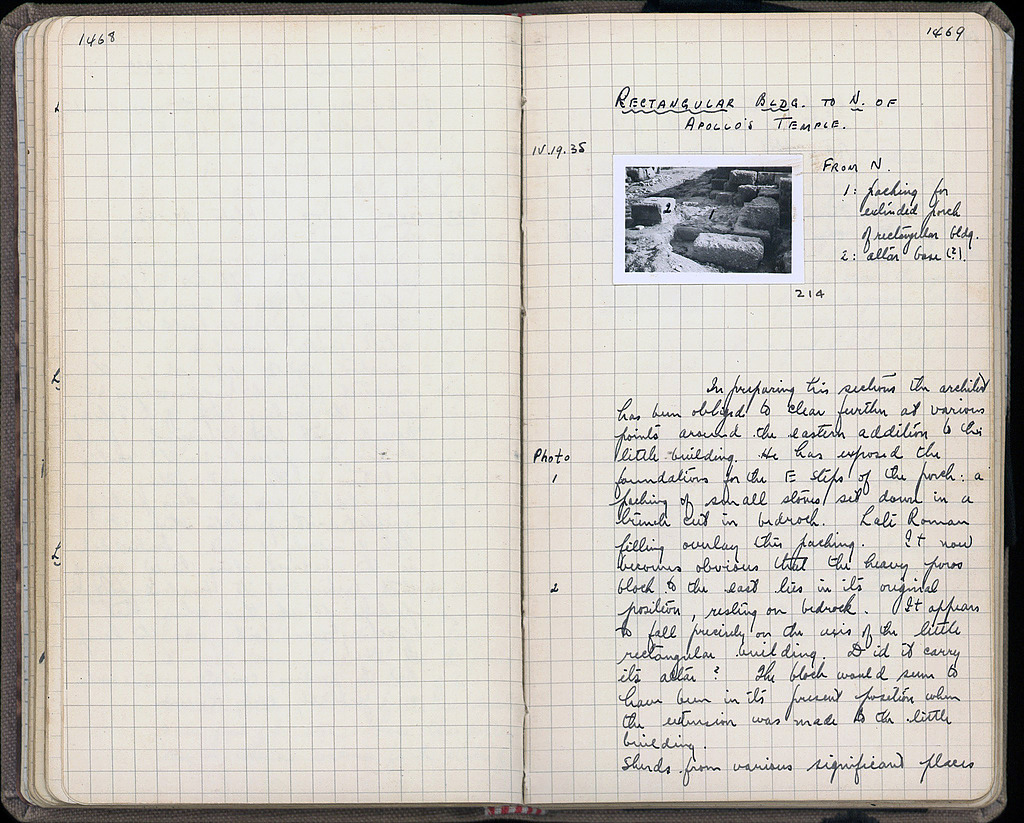 1468
1469
RECTANGULAR BLDG. TO N. OF
APOLLO'S TEMPLE.
IV.19.35
FROM N.
1: packing for
extended porch
of rectangular bldg.
2: altar base (?).
2
1
214
In preparing his sections the architect
has been obliged to clear further at various
points around the eastern addition to the
Photo
little building. He has exposed the
1
foundations for the E steps of the porch: a
packing of small stones set down in a
trench cut in bedrock. Late Roman
filling overlay this packing. It now
becomes obvious that the heavy poros
2
block to the east lies in its original
position, resting on bedrock. It appears
to fall precisely on the axis of the little
rectangular building. Did it carry
its altar? The block would seem to
have been in its present position when
the extension was made to the little
building.
Sherds from various significant places